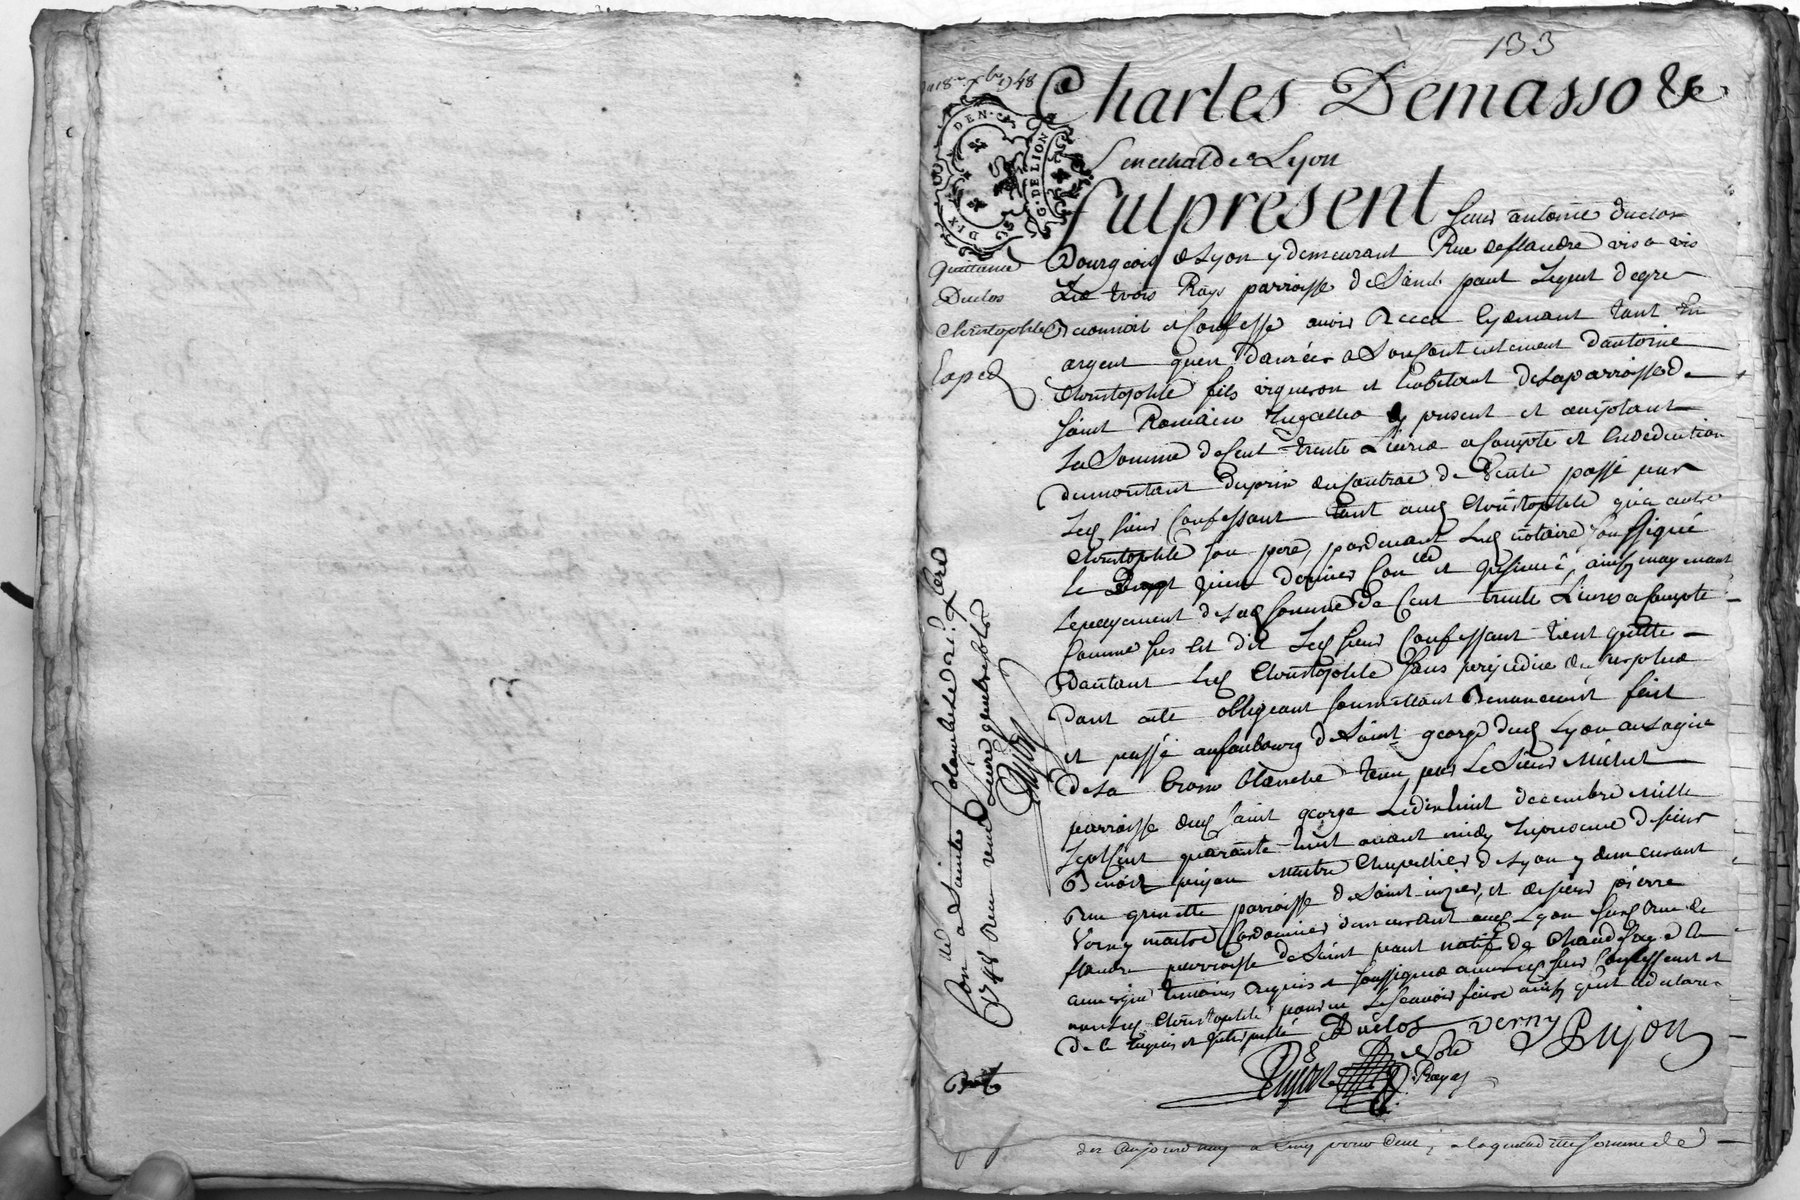 133
18 xbre 1748
Charles Demasso &c
Senechal de Lyon
DIX DEN.
G. DE LION
Quittance
Duclos
Christophle
Coped
Fut present sieur antoine duclos
Bourgeois de Lyon y demeurant Rue de flandre vis a vis
Les trois Rays parroisse de Saint paul Lequel de gré
Reconnoit et Confesse avoir Receu cydevant tant En
argent quen danrées a Son Contentement dantoine
Christophle fils vigneron et habitant de la parroisse de
saint Romain present et acceptant
La Somme de Cent trente Livres a Compte et En deduction
du montant du prix du Contrat de Vente passé par
Led sieur Confessant tant aud Christophle qu'a autre
Christophle son pere, pardevant Led notaire soussigné
le juin dernier Con lé et , ainsy moyenant
le payement de lad somme de Cent trente Livres a Compte
Comme sus est dit Led sieur Confessant tient quitte
dautant Led Christophle sans prejudice du surplus
dont acte obligeant soumettant Renonceant fait
et passé au faubourg de Saint george dud Lyon au Logis
de la Croix blanche tenu par Le Sieur Michel
parroisse dud saint george Le dixhuit decembre Mille
Sept Cent quarante huit avant midy En presence de sieur
Benoit pujon maitre Chapellier de Lyon y demeurant
rue grenette parroisse de Saint nizier, et de sieur pierre
Verny maitre Cordonnier demeurant aud Lyon susd rue de
flandre parroisse de Saint paul natif de
auvergne temoins requis et soussignés avec Led sieur Confessant et
non Led Christophle pour ne Le scavoir faire ainsy qu'il a declaré
de ce Enquis et Interpellé
Duclos verny Pujon
Pujon
Con lé a Sainte Colombe le
1748 Receu vingt
des aujourd'huy a pour , a laquelle Somme de